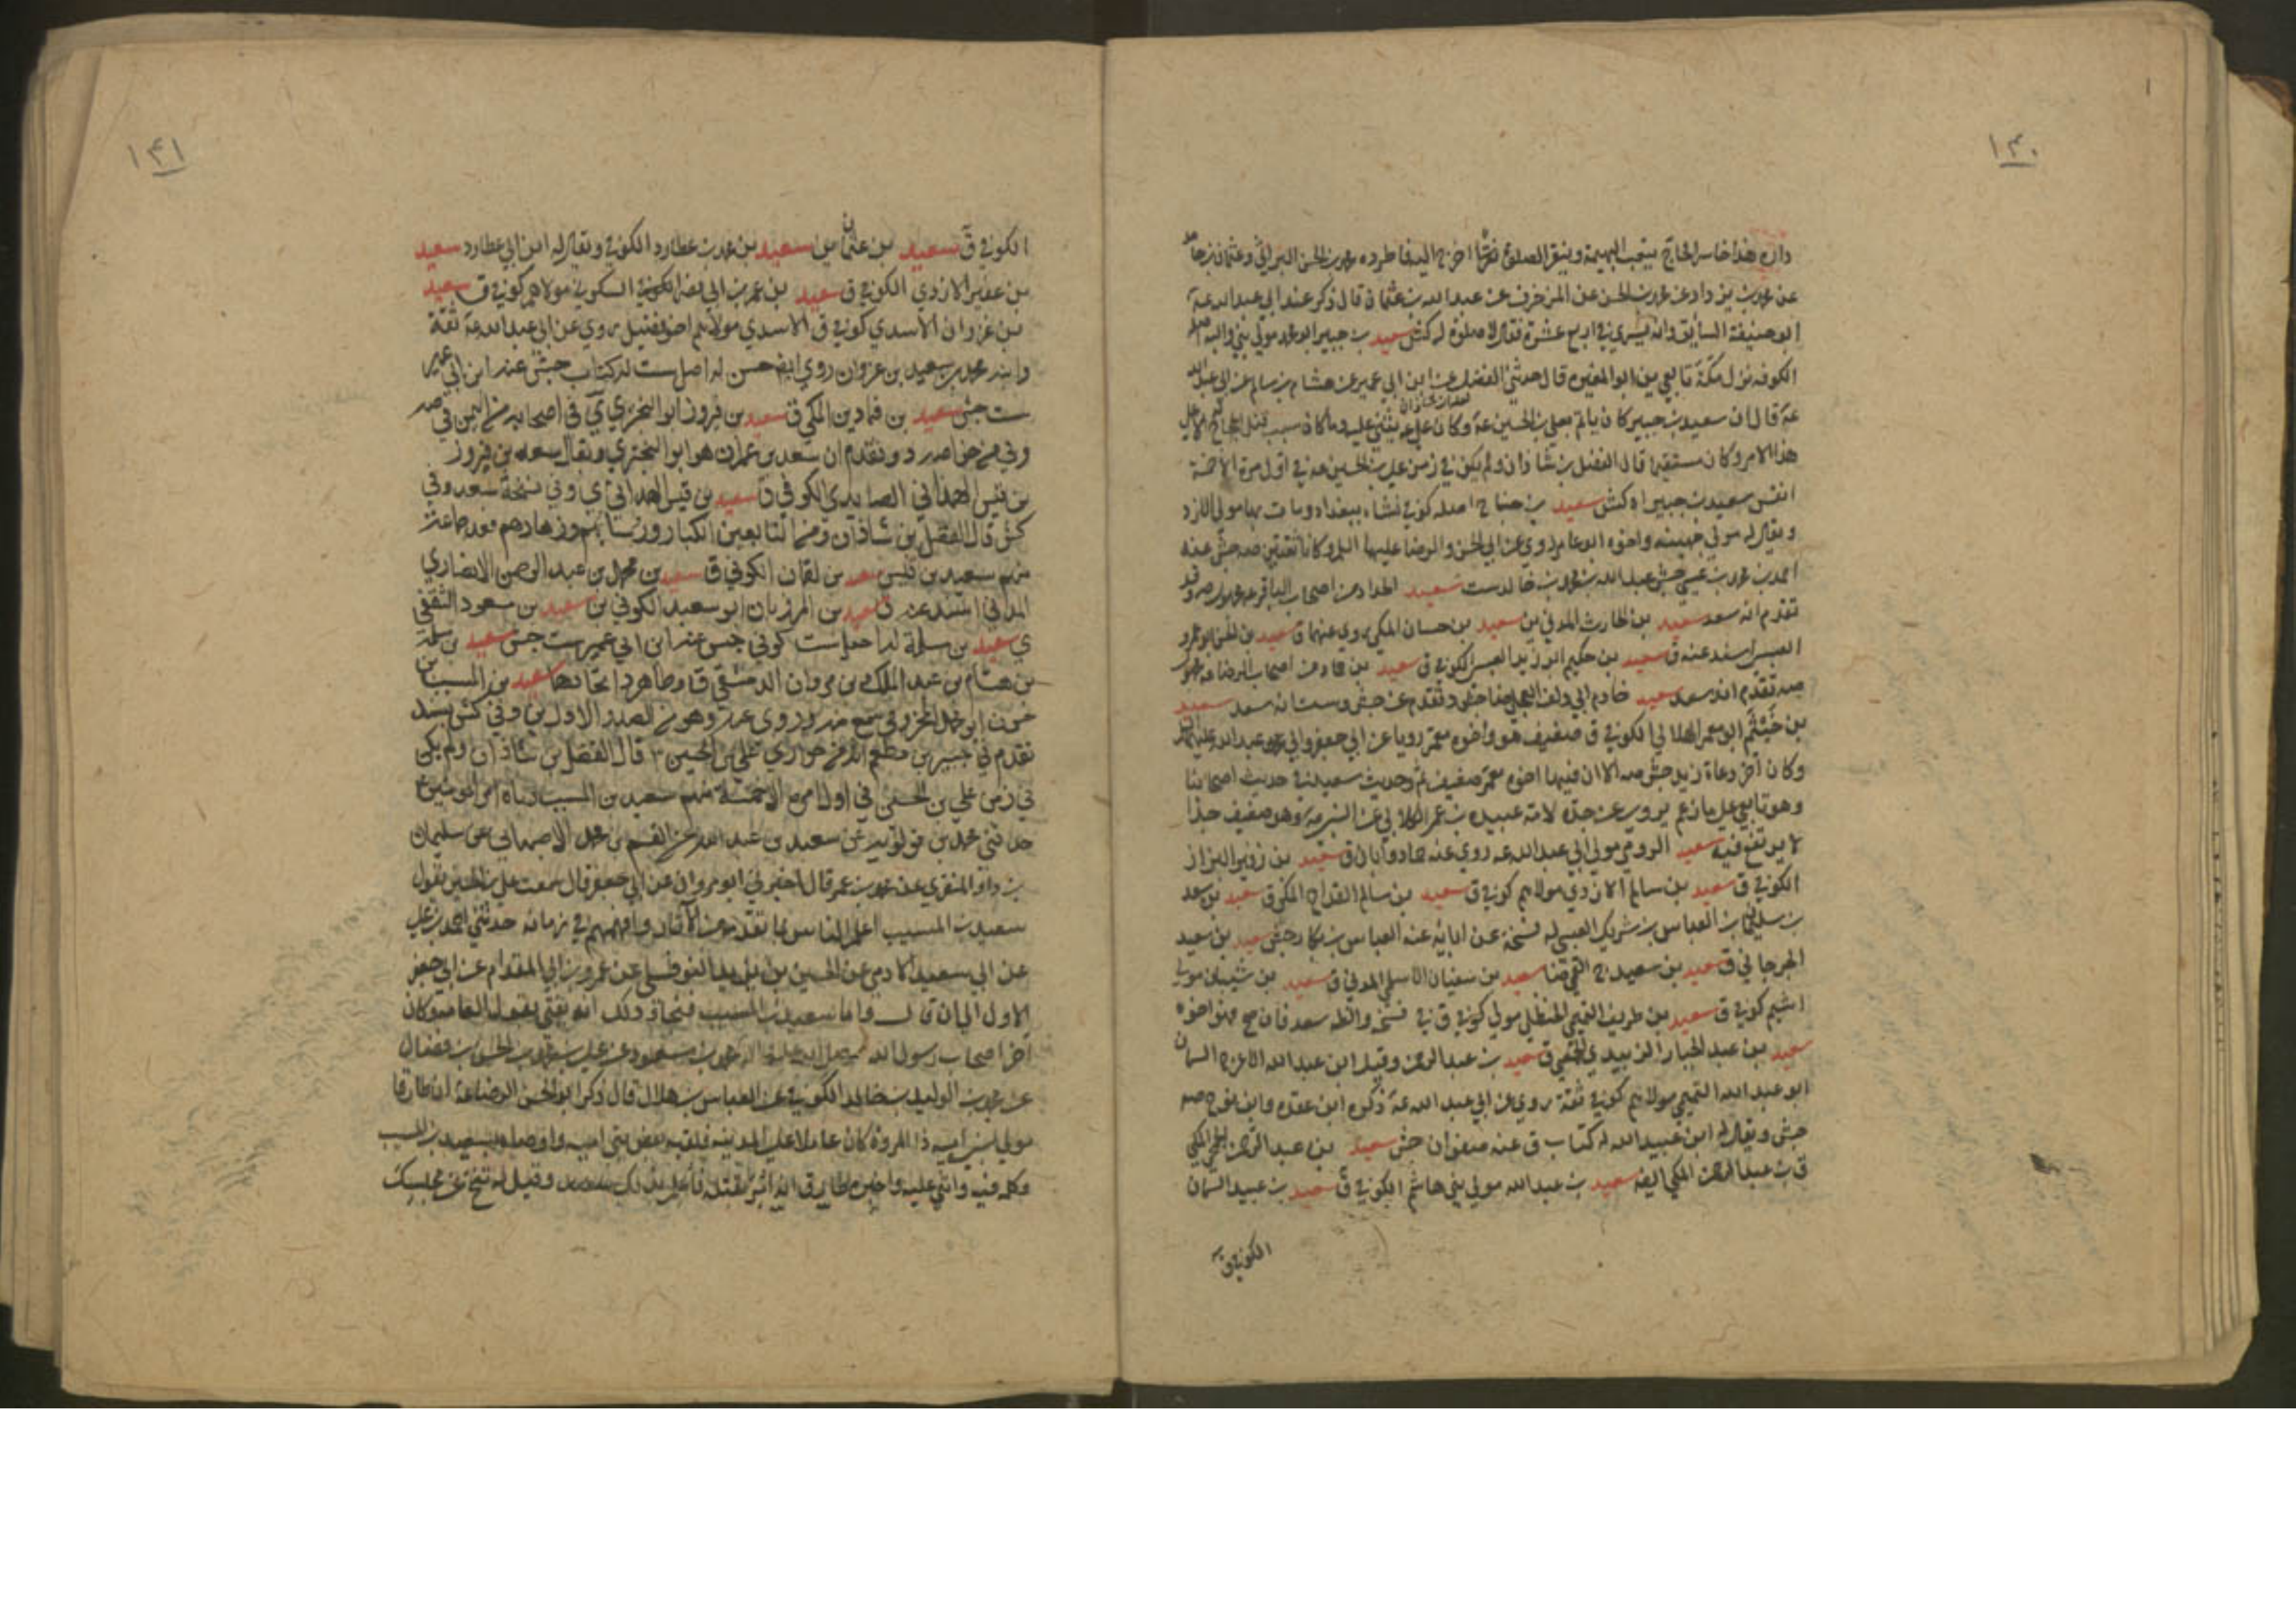 ١٤٠
داره هذا خاسر الحاج يتعب البهيمة وينقر الصلوة اخرج اليه فاطرده محمد بن الحسن البراثي وعثمان بن حامد
عن محمد بن يزداد عن محمد بن الحسن عن المزخرف عن عبد الله بن عثمان قال ذكر عند ابي عبد الله عه
ابو حنيفة السابق وانه يسري في اربع عشرة فقال لا صلوة له كش سعيد بن جبير ابو محمد مولى بني والبه
الكوفه نزل مكة تابعي ين ابو المغيره قال حدثني الفضل عن ابن ابي عمير عن هشام بن سالم عن ابي عبد الله
عه قال ان سعيد بن جبير كان ياتم بعلي بن الحسين عه وكان علي عه يثني عليه وما كان سبب قتل الحجاج له الا علي
هذا الامر وكان مستقيما قال الفضل بن شاذان ولم يكن في زمن علي بن الحسين عه في اول امره الا خمسة
انفس سعيد بن جبير اه كش سعيد بن جناح اصله كوفي نشاء ببغداد ومات بها مولى الازد
ويقال له مولى جهينه واخوه ابو عامر روى عن ابي الحسن والرضا عليهما السلم وكانا ثقتين صه جش عنه
احمد بن محمد بن عيسى جش عبد الله بن محمد بن خالد ست سعيد الحداد من اصحاب الباقر عه مجهول صه وقد
تقدم انه سعد سعيد بن الحارث المدني ين سعيد بن حسان المكي روى عنهما ق سعيد بن الحسن ابو عمرو
العبسي اسند عنه ق سعيد بن حكيم ابو زيد العبسي الكوفي ق سعيد بن حماد من اصحاب الرضا عه مجهول
صه تقدم انه سعد سعيد خادم ابي دلف العجلي ضا جش وتقدم عن جش وست انه سعد سعيد
بن خيثم ابو معمر الهلالي الكوفي ق ضعيف هو واخوه معمر رويا عن ابي جعفر وابي عبد الله عليهما السلم
وكان من دعاة زيد جش صه الا ان فيها اخوه معمر ضعيف ثم وحديث سعيد في حديث اصحابنا
وهو تابعي علي ما زعم يروي عن جده لامه عبيده بن عمر الكلابي عن النبي ص وهو ضعيف جدا
لا يرتفع فيه سعيد الرومي مولى ابي عبد الله عه روى عنه حماد وابان ق سعيد بن زفير البزاز
الكوفي ق سعيد بن سالم الازدي مولاهم كوفي ق سعيد بن سالم القداح المكي ق سعيد بن سعد
بن سليمان بن العباس بن شريك العبسي له نسخة عن ابائه عنه العباس بن بكار جش سعيد بن سعيد
الجرجاني ق سعيد بن سعيد القمي ضا سعيد بن سفيان الاسلمي المدني ق سعيد بن شيبان مولى
اشيم كوفي ق سعيد بن طريف التميمي الحنظلي مولى كوفي ق في نسخه والظ سعد فان صح فهو اخوه
سعيد بن عبد الجبار الزبيدي الحمصي ق سعيد بن عبد الرحمن وقيل ابن عبد الله الاعرج السمان
ابو عبد الله التميمي مولاهم كوفي ثقة روى عن ابي عبد الله عه ذكره ابن عقده وابن نوح صه
جش ويقال له ابن عبيد الله له كتاب ق عنه صفوان جش سعيد بن عبد الرحمن الجمحي المكي
ق بن عبد الرحمن المكي ايضه سعيد بن عبد الله مولى بني هاشم الكوفي ق سعيد بن عبيد السمان
الكوفي ق
١٤١
الكوفي ق سعيد بن عثمان ين سعيد بن محمد بن عطارد الكوفي ويقال له ابن ابي عطارد سعيد
بن عفير الازدي الكوفي ق سعيد بن عمر بن ابي نصر الكوفي السكوني مولاهم كوفي ق سعيد
بن غزوان الاسدي كوفي ق الاسدي مولاهم اخو فضيل روى عن ابي عبد الله عه ثقة
وابنه محمد بن سعيد بن غزوان روى ايضه جش له اصل ست له كتاب جش عنه ابن ابي عمير
ست جش سعيد بن قمادين المكي ق سعيد بن فيروز ابو البختري ي في اصحابه من اليمن في صه
وفي من خواصه رد وتقدم ان سعد بن عمران هو ابو البختري ويقال سعد بن فيروز
بن قيس الهمداني الصايدي الكوفي ق سعيد بن قيس الهمداني ي وفي نسخة سعد وفي
كش قال الفضل بن شاذان ومن التابعين الكبار ورؤسائهم وزهادهم فعد جماعة
منهم سعيد بن قيس سعيد بن لقمان الكوفي ق سعيد بن محمد بن عبد الرحمن الانصاري
المدني اسند عنه ق سعيد بن المرزبان ابو سعيد الكوفي ين سعيد بن مسعود الثقفي
ي سعيد بن سلمة له اصل ست كوفي جش عنه ابن ابي عمير ست جش سعيد بن سلمة
بن هشام بن عبد الملك بن مروان الدمشقي ق وظاهر د اتحادهما سعيد بن المسيب بن
حزن ابو محمد المخزومي سمع منه وروى عنه وهو من الصدر الاول ين وفي كش بسند
تقدم في جبير بن مطعم انه من حواري علي بن الحسين ٣ قال الفضل بن شاذان ولم يكن
في زمن علي بن الحسين في اول امره الا خمسة منهم سعيد بن المسيب رباه امير المؤمنين ع
حدثني محمد بن قولويه عن سعد بن عبد الله عن القسم بن محمد الاصبهاني عن سليمان
بن داود المنقري عن محمد بن عمر قال اخبرني ابو مروان عن ابي جعفر قال سمعت علي بن الحسين يقول
سعيد بن المسيب اعلم الناس بما تقدمه من الاثار وافهمهم في زمانه حدثني احمد بن علي
عن ابي سعيد الادمي عن الحسين بن يزيد النوفلي عن عمرو بن ابي المقدام عن ابي جعفر
الاول الى ان قال واما سعيد بن المسيب فنجا وذلك انه يفتي بقول العامه وكان
آخر اصحاب رسول الله محمد بن مسعود عن علي بن محمد بن الحسن بن فضال
عن محمد بن الوليد بن خالد الكوفي عن العباس بن هلال قال ذكر ابو الحسن الرضا عه ان طارقا
مولى لبني اميه ذا المروة كان عاملا على المدينه فلقيه بعض بني اميه واوصاه بسعيد بن المسيب
وكلمه فيه واثنى عليه واخبره طارق انه امر بقتله فاعلم بذلك وقيل له تنح عن مجلسك